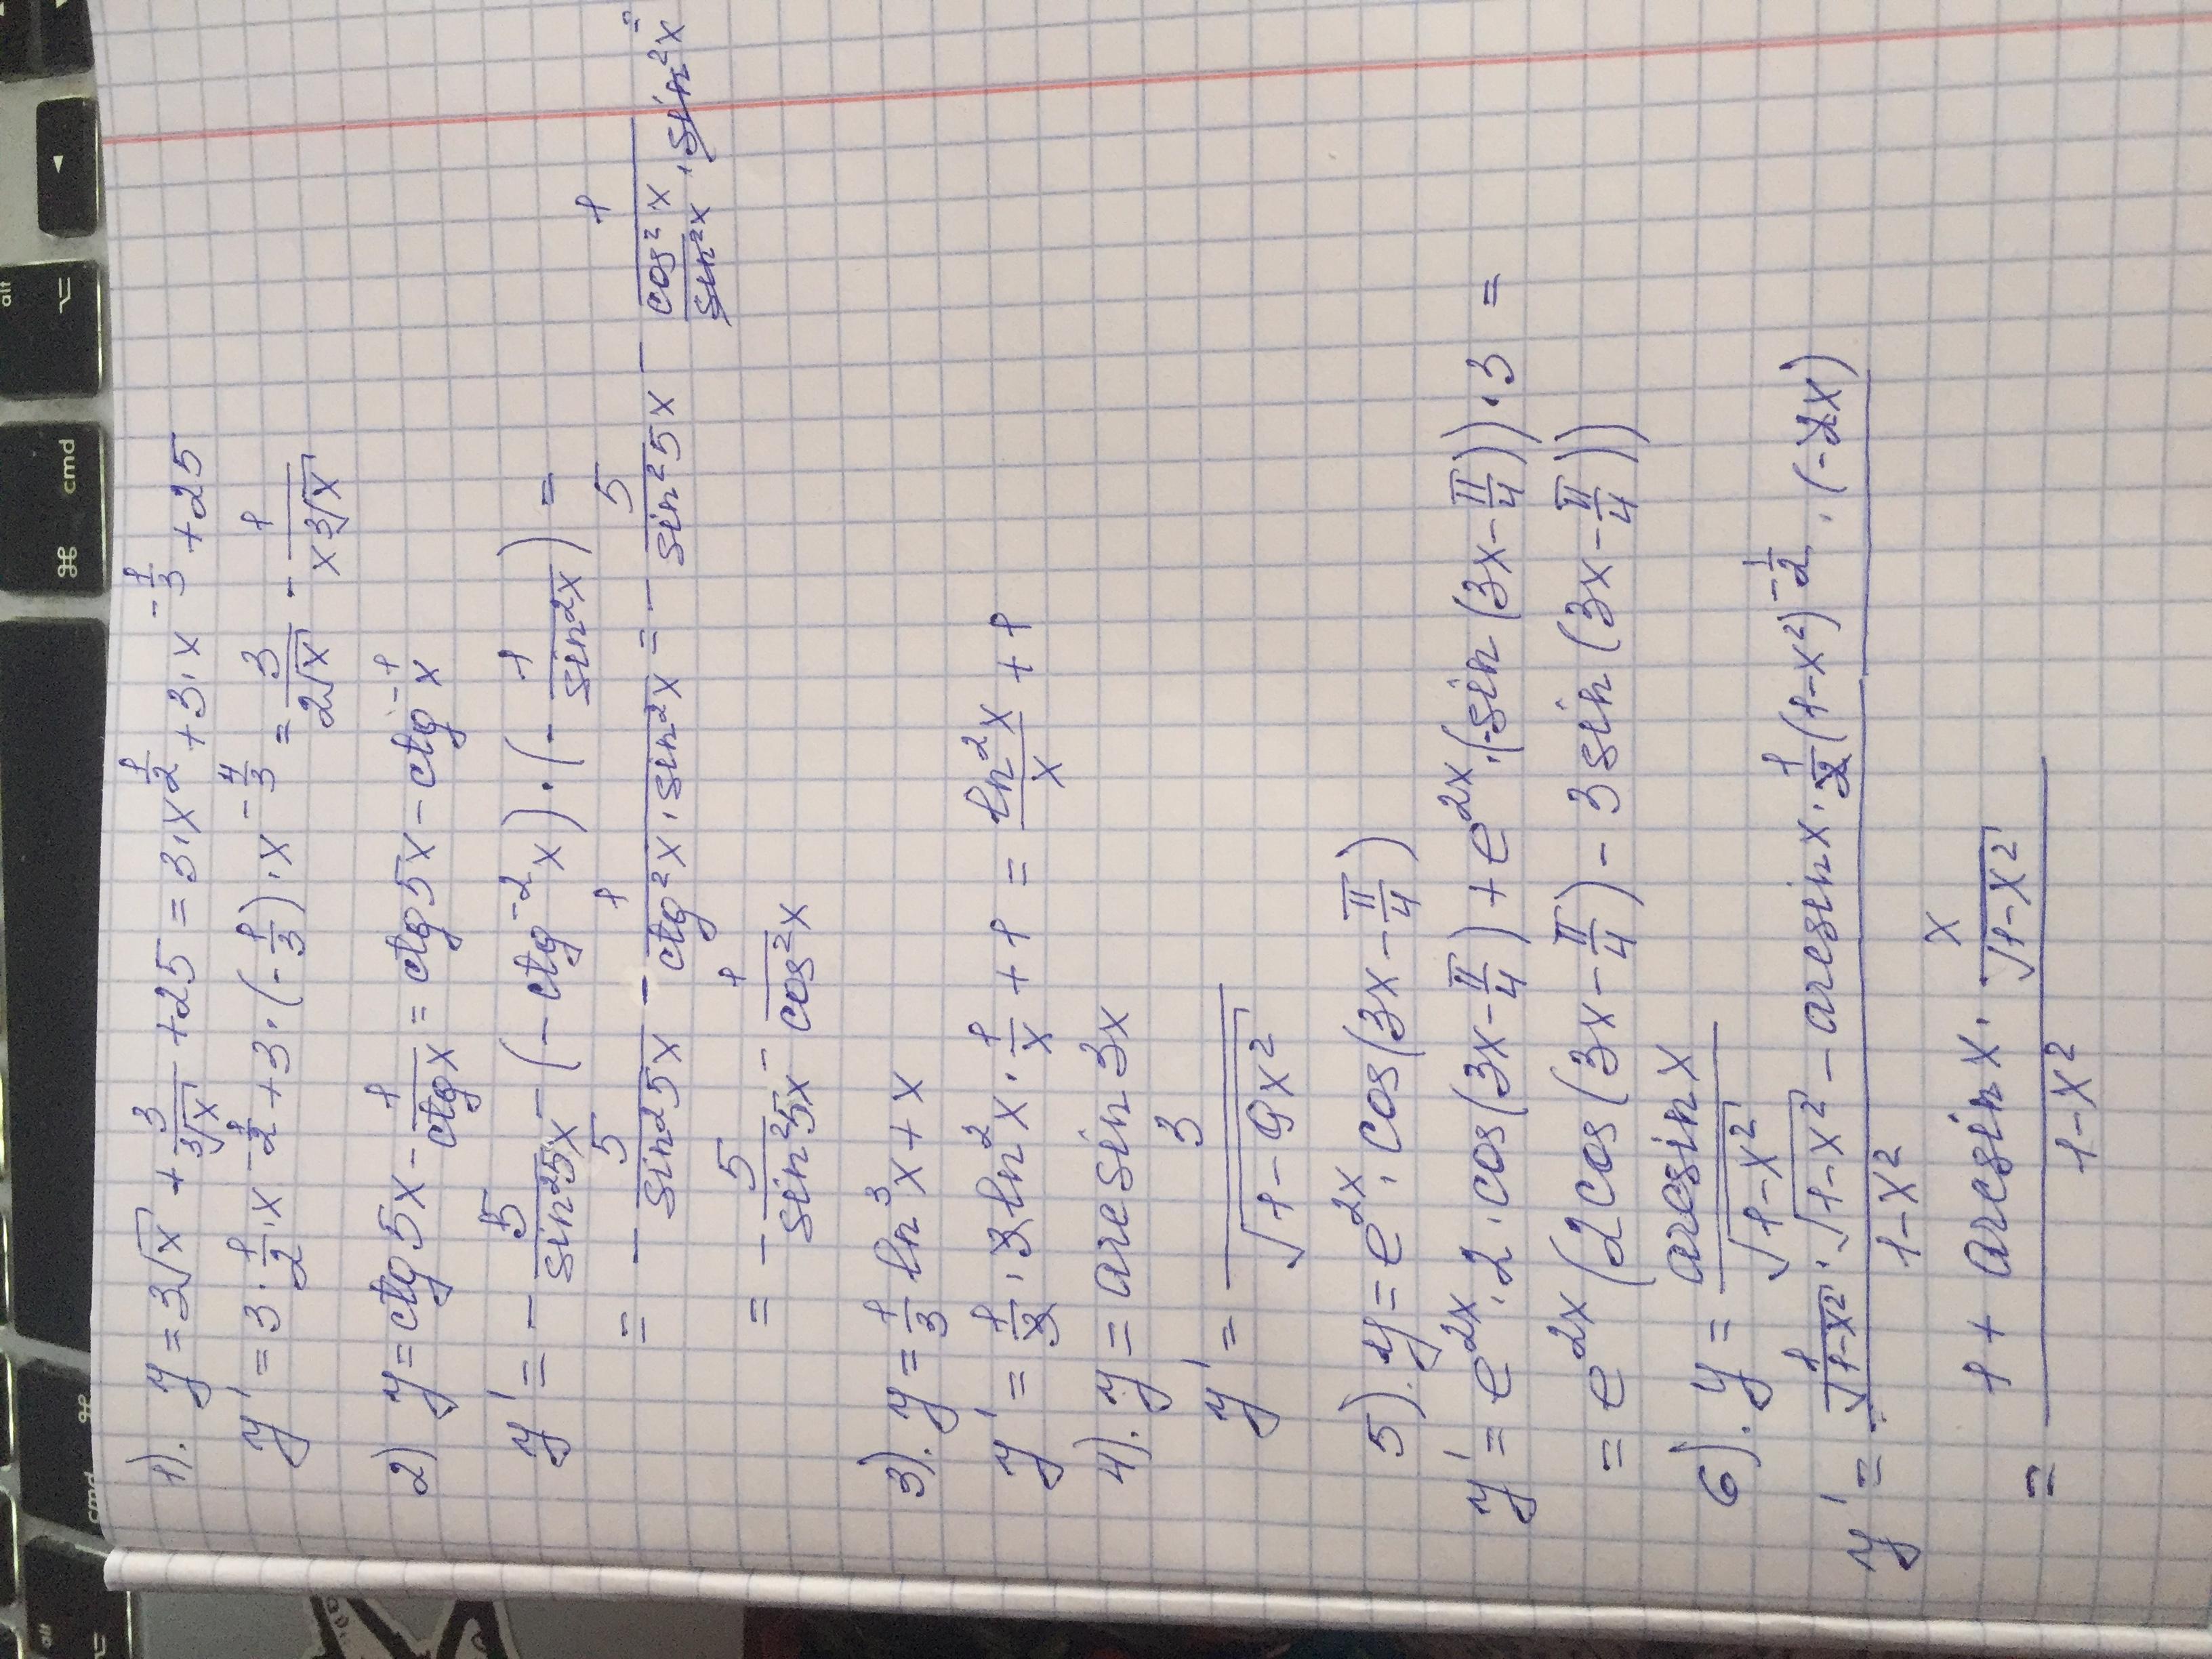 1). y = 3√x + 3/∛x + 25 = 3·x^(1/2) + 3·x^(-1/3) + 25
y' = 3·1/2·x^(-1/2) + 3·(-1/3)·x^(-4/3) = 3/(2√x) - 1/(x∛x)
2) y = ctg5x - 1/ctgx = ctg5x - ctg^(-1)x
y' = - 5/sin²5x - (-ctg^(-2)x)·(- 1/sin²x) =
= - 5/sin²5x - 1/(ctg²x·sin²x) = - 5/sin²5x - 1/(cos²x/sin²x·sin²x) =
= - 5/sin²5x - 1/cos²x
3). y = 1/3 ln³x + x
y' = 1/3·3ln²x·1/x + 1 = ln²x/x + 1
4). y = arcsin3x
y' = 3/√(1-9x²)
5). y = e^(2x)·cos(3x - π/4)
y' = e^(2x)·2·cos(3x - π/4) + e^(2x)·(-sin(3x - π/4))·3 =
= e^(2x)(2cos(3x - π/4) - 3sin(3x - π/4))
6). y = arcsinx/√(1-x²)
y' = (1/√(1-x²)·√(1-x²) - arcsinx·1/2(1-x²)^(-1/2)·(-2x))/(1-x²)
= (1 + arcsinx·x/√(1-x²))/(1-x²)
alt
cmd
⌘
cmd
⌘
alt